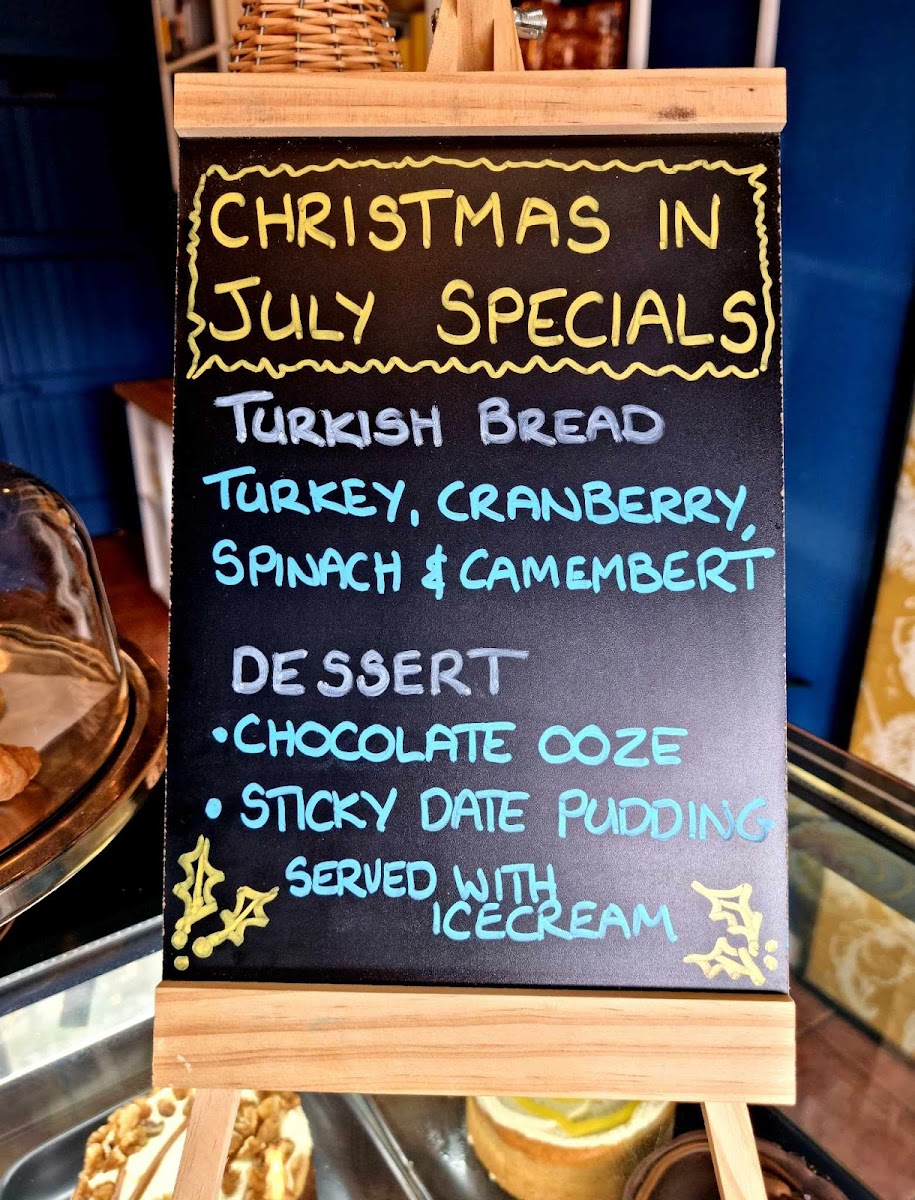 CHRISTMAS IN
JULY SPECIALS
TURKISH BREAD
TURKEY, CRANBERRY,
SPINACH & CAMEMBERT
DESSERT
• CHOCOLATE OOZE
• STICKY DATE PUDDING
SERVED WITH
ICECREAM